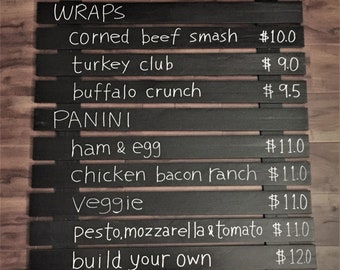 WRAPS
corned beef smash $10.0
turkey club $9.0
buffalo crunch $9.5
PANINI
ham & egg $11.0
chicken bacon ranch $11.0
veggie $11.0
pesto, mozzarella & tomato $11.0
build your own $12.0